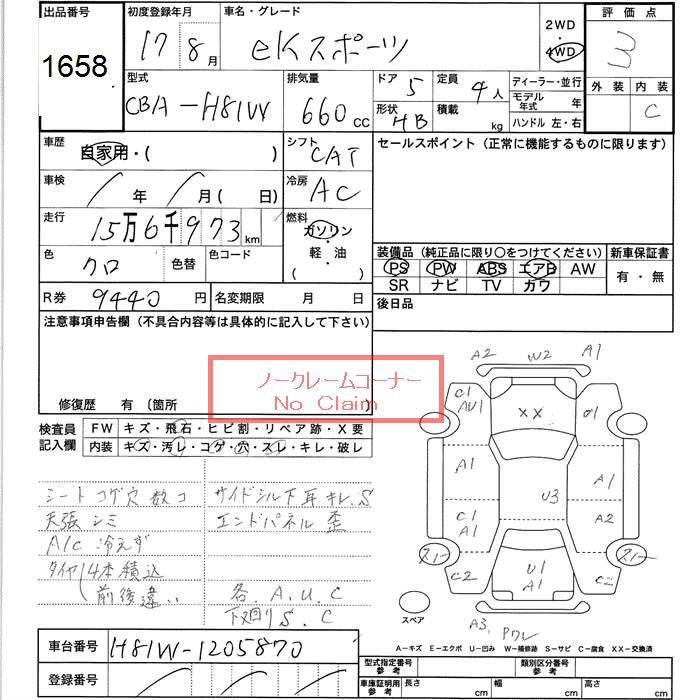 出品番号 初度登録年月 車名・グレード 2WD 評価点
1658 17 8月 eKスポーツ 4WD 3
型式 排気量 ドア 5 定員 4人 ディーラー・並行 外装 内装
CBA-H81W 660cc 形状 HB 積載 kg モデル年式 年 C
ハンドル 左・右
車歴 自家用・( ) シフト CAT セールスポイント (正常に機能するものに限ります)
車検 / 年 / 月 ( 日) 冷房 AC
走行 15万6千973km 燃料 ガソリン・軽・油
色 クロ 色替 色コード
装備品 (純正品に限り○をつけてください) 新車保証書
PS PW ABS エアB AW 有・無
SR ナビ TV カワ
R券 9440円 名変期限 月 日 後日品
注意事項申告欄 (不具合内容等は具体的に記入して下さい)
ノークレームコーナー
No Claim
修復歴 有 (箇所
検査員記入欄 FW キズ・飛石・ヒビ割・リペア跡・X要
内装 キズ・汚レ・コゲ・穴・スレ・キレ・破レ
シートコゲ穴数コ サイドシル下耳キレ.S
天張シミ エンドパネル歪
A/C冷えず
タイヤ(4本積込 各.A.U.C
前後違い 下廻りS.C
A2 W2 A1
C1 AU1 XX U1
A1 A1
U3
C1 A1 A2
スノー スノー
C2 U1 A1 C2
スペア A3. Pワレ
A-キズ E-エクボ U-凹み W-補修跡 S-サビ C-腐食 XX-交換済
車台番号 H81W-1205870
登録番号
型式指定番号 参考 類別区分番号 参考
車庫証明用 参考 長さ cm 幅 cm 高さ cm